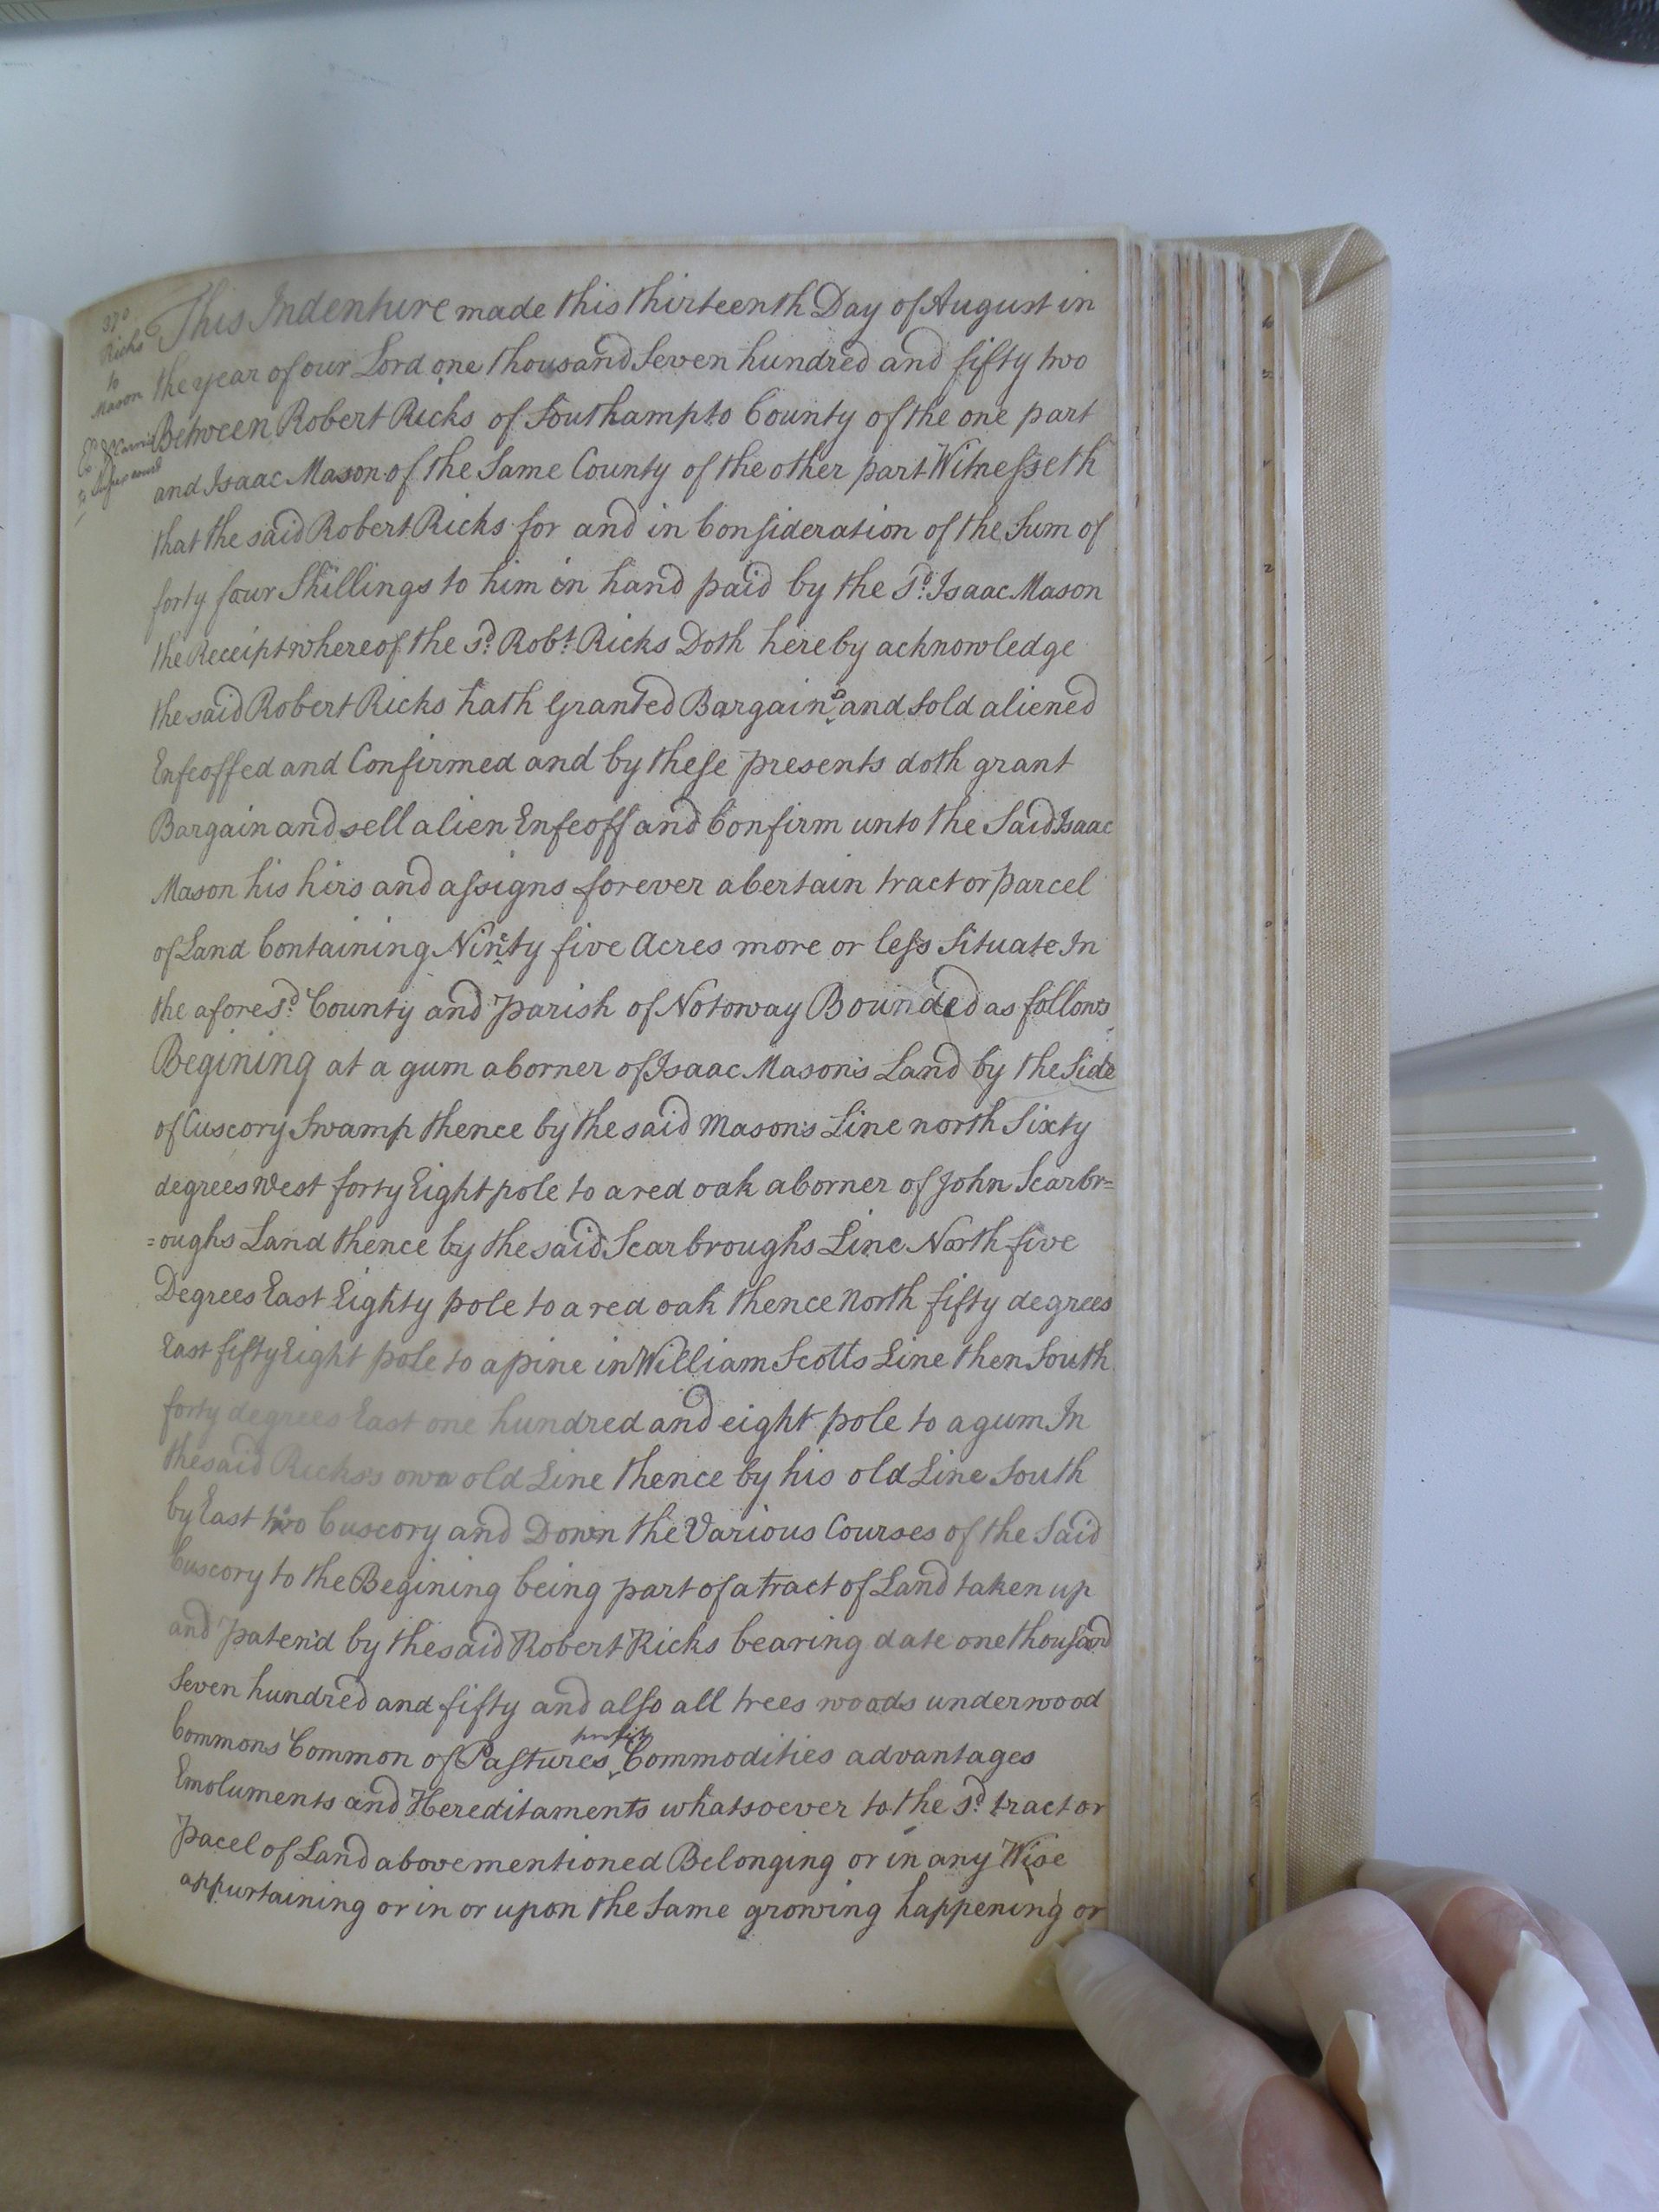 370
Ricks
to
Mason
This Indenture made this thirteenth Day of August in
the year of our Lord one thousand Seven hundred and fifty two
Between Robert Ricks of Southampto County of the one part
and Isaac Mason of the Same County of the other part Witnesseth
that the said Robert Ricks for and in Consideration of the Sum of
forty four Shillings to him in hand paid by the Sd. Isaac Mason
the Receipt whereof the sd. Robt. Ricks Doth hereby acknowledge
the said Robert Ricks hath Granted Bargaind and Sold aliened
Enfeoffed and Confirmed and by these presents doth grant
Bargain and sell alien Enfeoff and Confirm unto the Said Isaac
Mason his hirs and assigns forever a Certain tract or parcel
of Land Containing Ninety five Acres more or less Situate In
the afores'd. County and parish of Notoway Bounded as follows
Begining at a gum a Corner of Isaac Mason's Land by the Side
of Cuscory Swamp thence by the said Mason's Line north Sixty
degrees west forty Eight pole to a red oak a Corner of John Scarbr=
=oughs Land thence by the said Scarbroughs Line North five
Degrees East Eighty pole to a red oak thence North fifty degrees
East fifty Eight pole to a pine in William Scotts Line then South
forty degrees East one hundred and eight pole to a gum In
the said Ricks's own old Line thence by his old Line South
by East to Cuscory and Down the Various Courses of the Said
Cuscory to the Begining being part of a tract of Land taken up
and paten'd by the said Robert Ricks bearing date one thousand
Seven hundred and fifty and also all trees woods underwood
Commons Common of Pastures profits Commodities advantages
Emoluments and Hereditaments whatsoever to the sd. tract or
pacel of Land abovementioned Belonging or in any Wise
appurtaining or in or upon the Same growing happening or